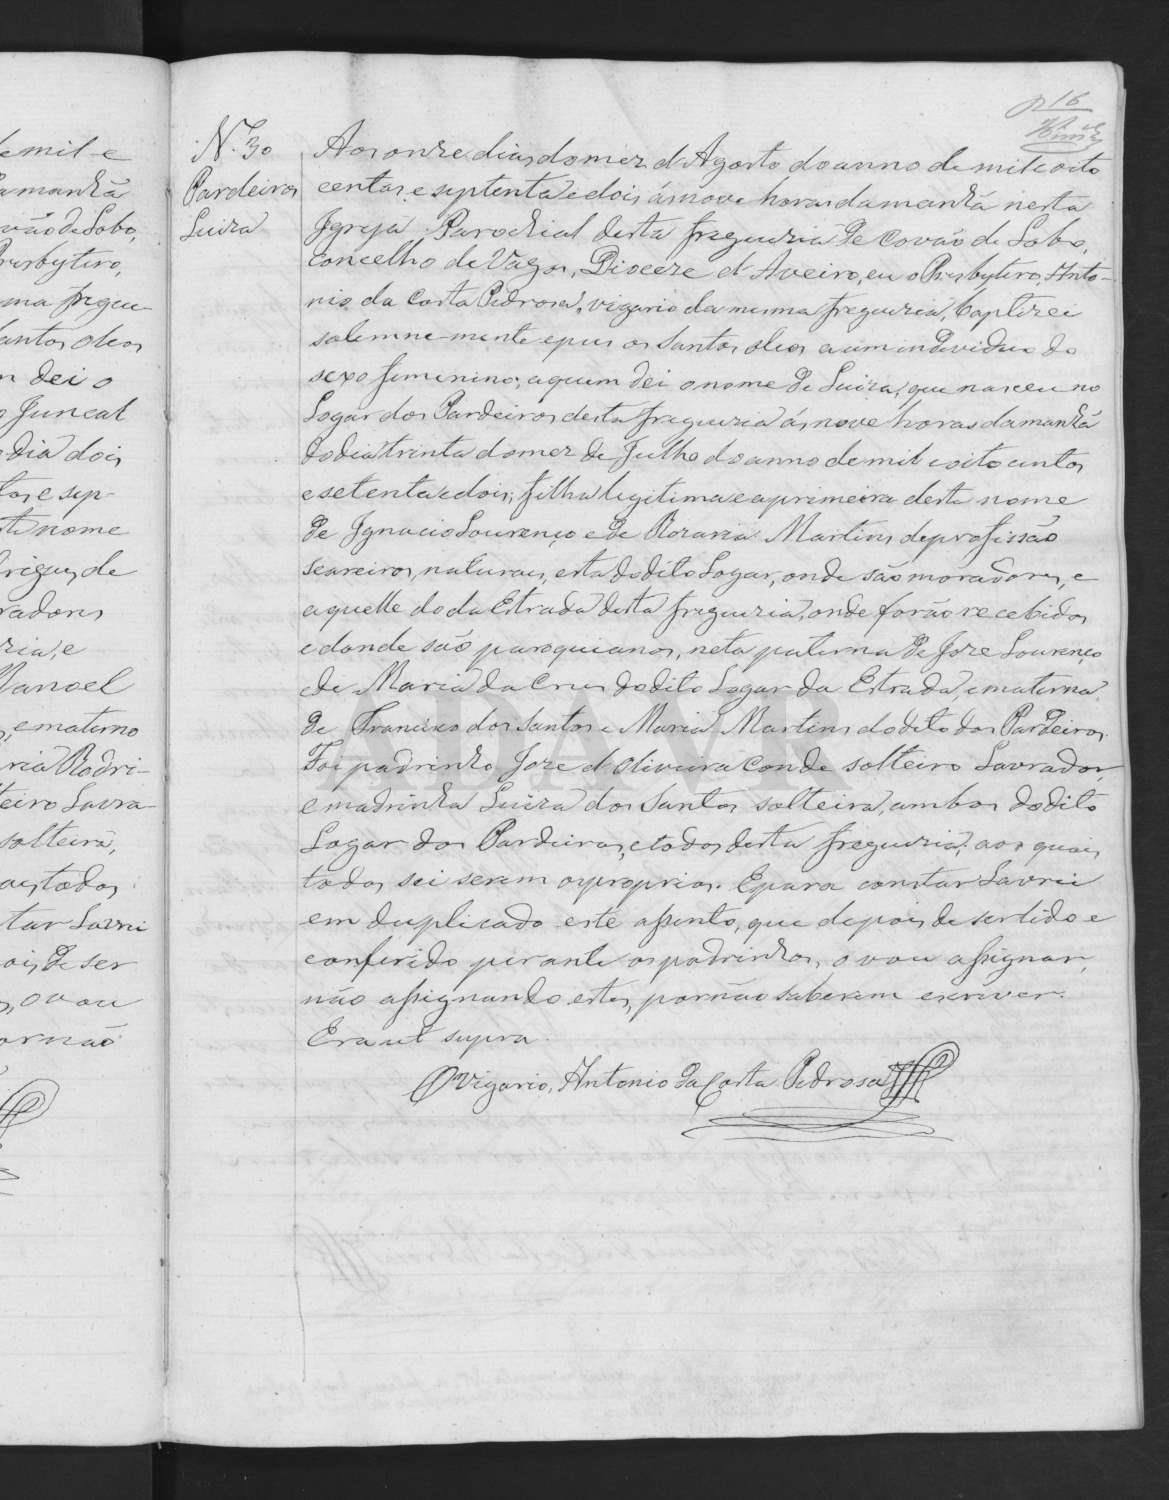 16
N.º 30
Pardeiros
Luiza
Aos onze dias do mez d'Agosto do anno de mil e oito
centos e septenta e dois ás nove horas da manhã nesta
Igreja Parochial desta freguezia de Covão de Lobo,
concelho de Vagos, Diocese d'Aveiro, eu o Presbytero, Anto-
nio da Costa Pedrosa, vigario da mesma freguezia, baptizei
solemne-mente e pus os Santos oleos a um individuo do
sexo femenino; a quem dei o nome de Luiza, que nasceu no
Logar dos Pardeiros desta freguezia ás nove horas da manhã
do dia trinta do mez de Julho do anno de mil e oito centos
e setenta e dois, filha legitima e a primeira deste nome
de Ignacio Lourenço e de Rozaria Martins de profissão
seareiros, naturaes, esta do dito Logar, onde são moradores, e
aquelle do da Estrada desta freguezia, onde forão recebidos
e donde são paroquianos, neta paterna de Joze Lourenço
e de Maria da Cruz do dito Logar da Estrada, e materna
de Francisco dos Santos e Maria Martins do dito dos Pardeiros.
Foi padrinho Joze d'Oliveira Conde solteiro Lavrador,
e madrinha Luiza dos Santos solteira, ambos do dito
Logar dos Pardeiros, e todos desta freguezia, aos quais
todos sei serem os proprios. E para constar Lavrei
em duplicado este assento, que depois de ser lido e
conferido perante os padrinhos, o vou assignar,
não assignando estes, por não saberem escrever.
Era ut supra.
O Vigario, Antonio da Costa Pedrosa
ADAVR
e mil e
a manhã
vão de Lobo,
Presbytero,
ma fregue-
antos oleos
m dei o
o Juncal
dia dois
tos e sep-
te nome
rigues, de
radores
ria, e
Manoel
, e materno
ria Rodri-
teiro Lavra-
solteira,
tar Lavrei
ois de ser
, o vou
or não